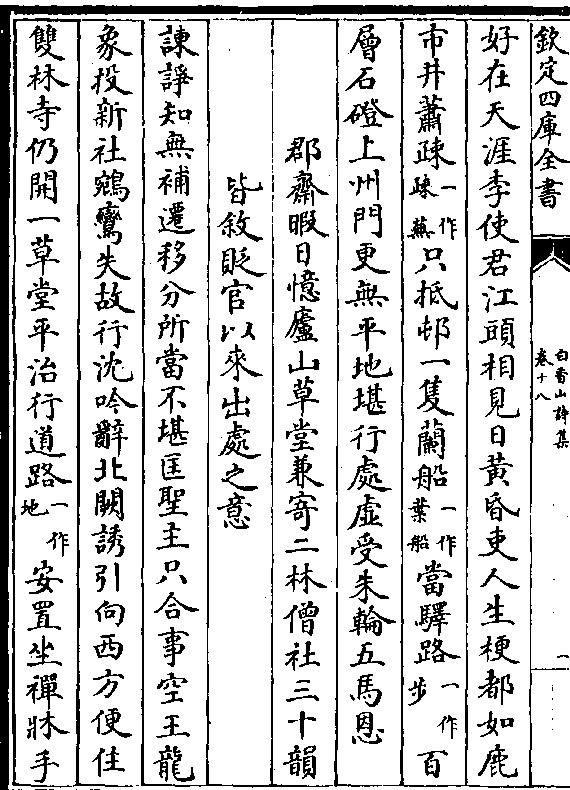 欽定四庫全書
白香山詩集
卷十八
一
好在天涯李使君江頭相見日黃昏吏人生梗都如鹿
市井蕭疎一作疎蕪只抵邨一隻蘭船一作葉船當驛路一作步百
層石磴上州門更無平地堪行處虛受朱輪五馬恩
郡齋暇日憶廬山草堂兼寄二林僧社三十韻
皆敘貶官以來出處之意
諫諍知無補遷移分所當不堪匡聖主只合事空王龍
象投新社鵷鸞失故行沈吟辭北闕誘引向西方便住
雙林寺仍開一草堂平治行道路一作地安置坐禪牀手